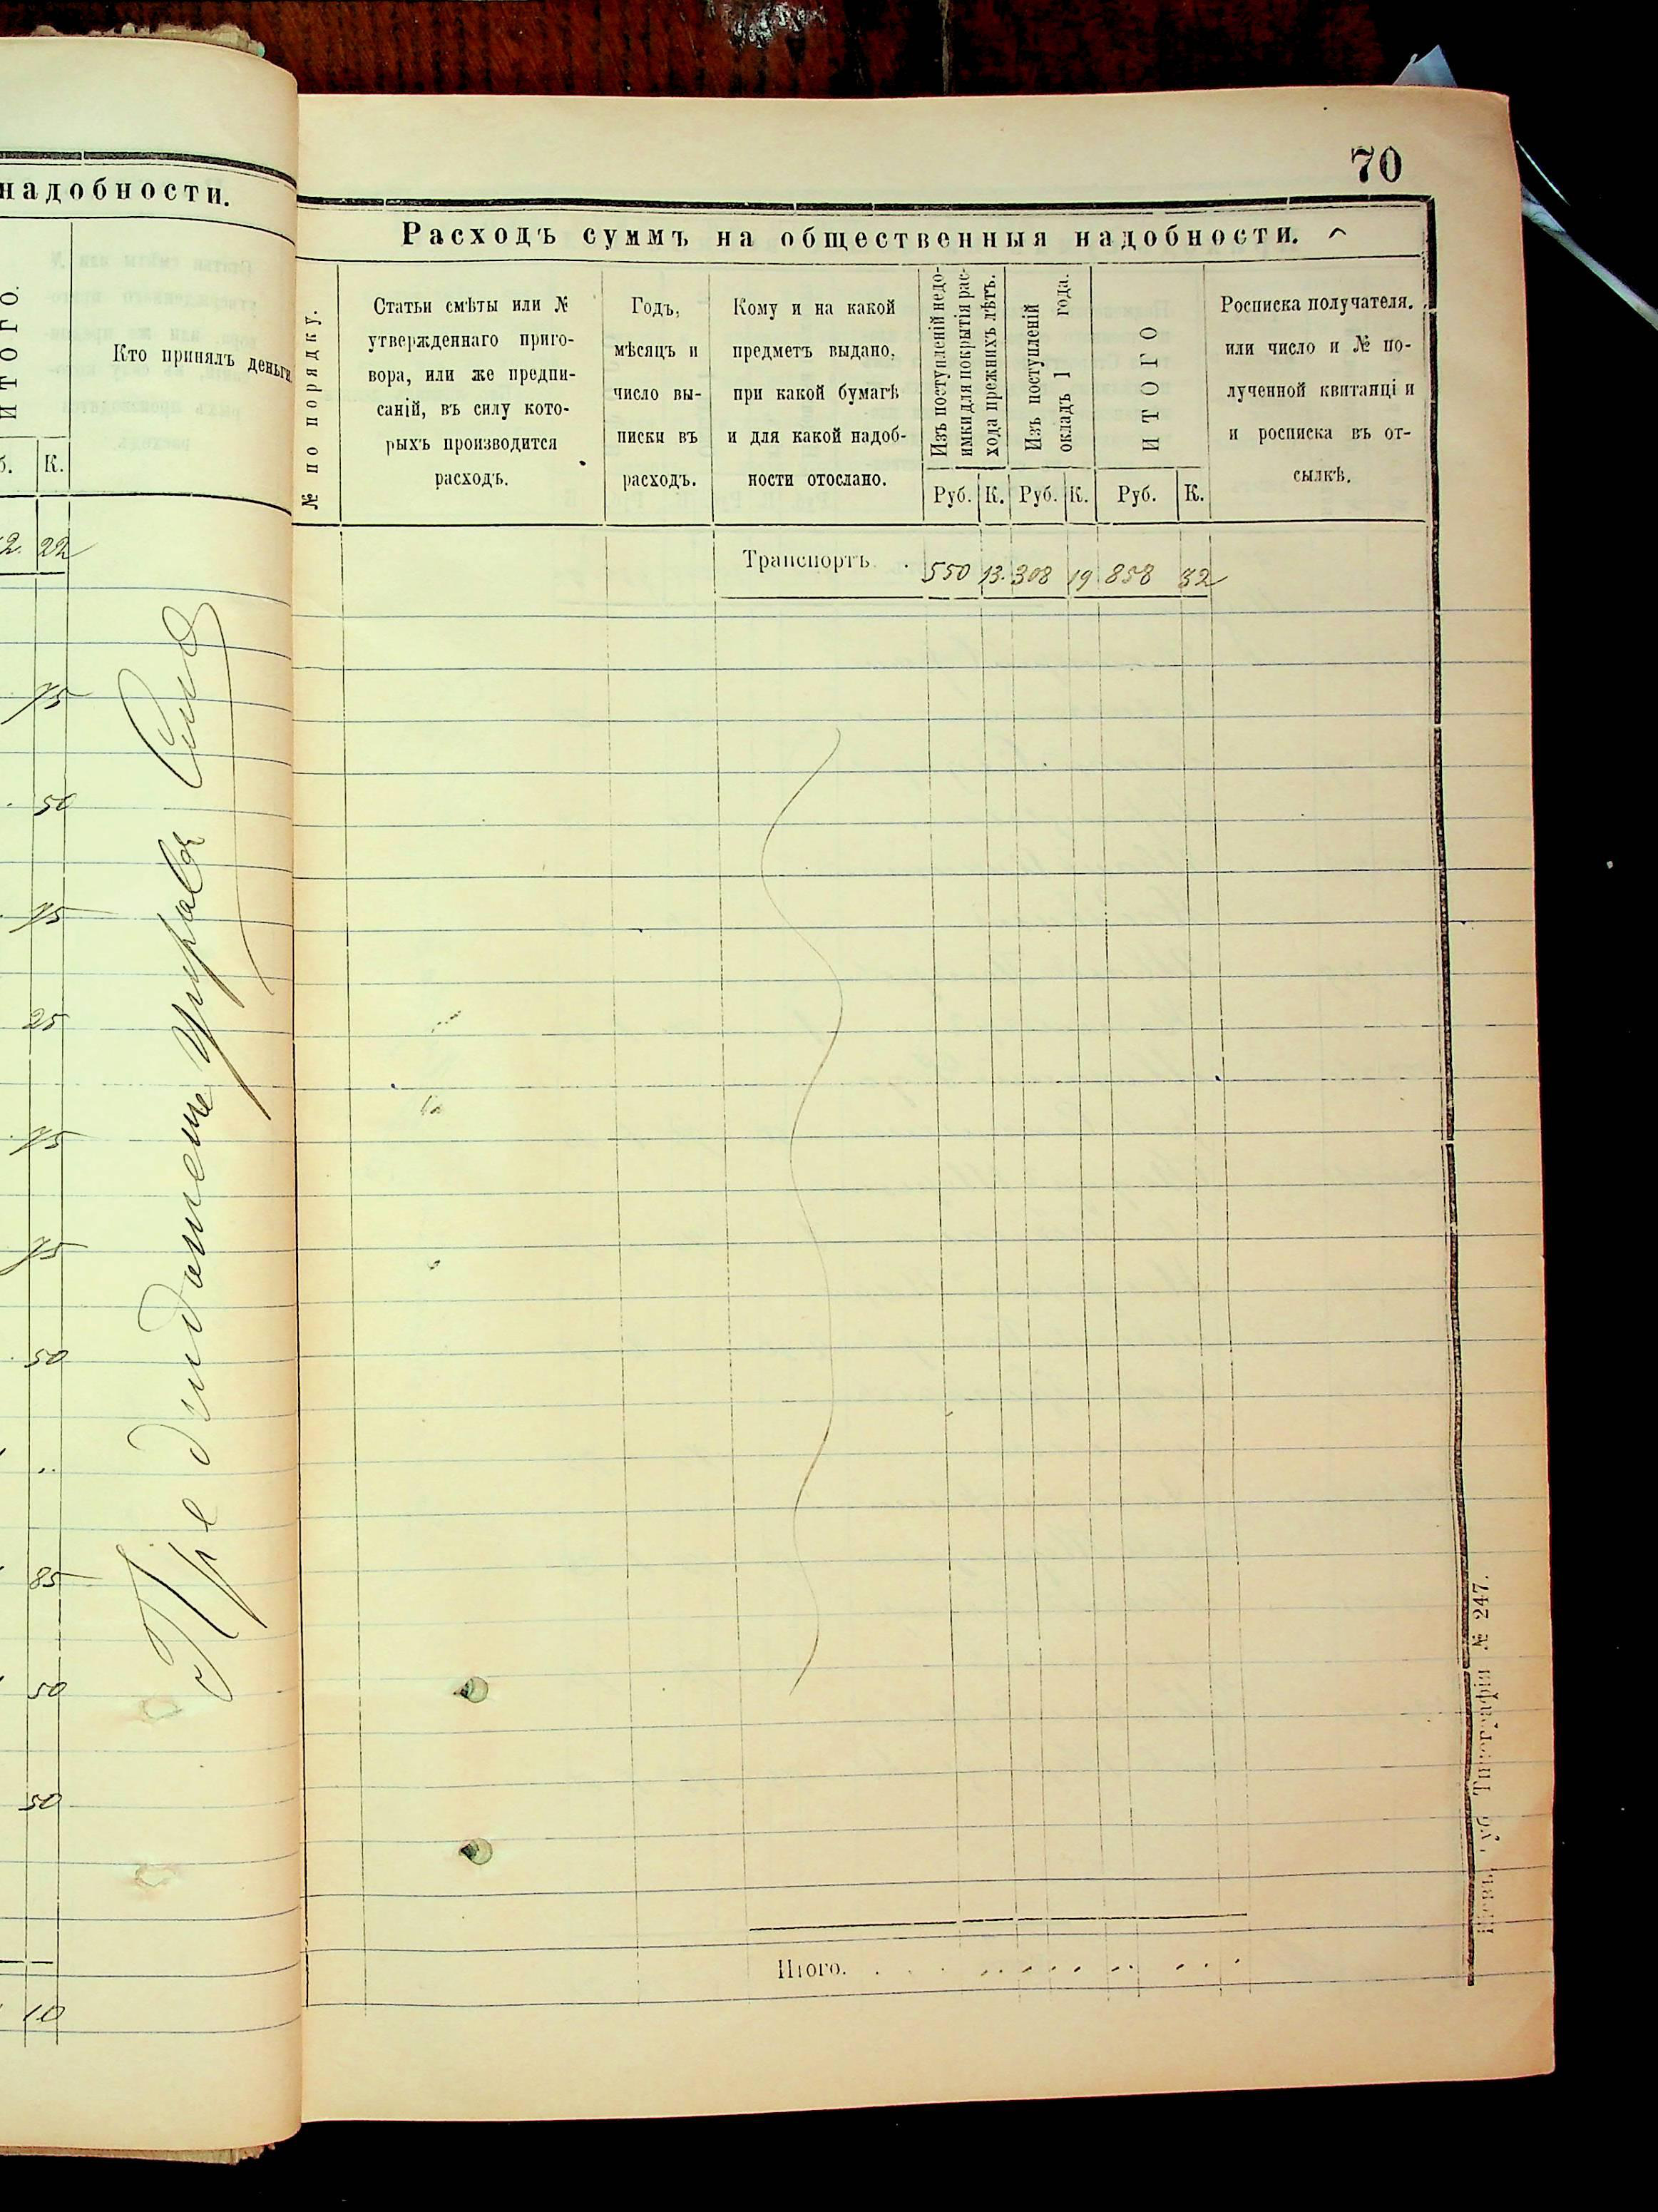 надобности.
ИТОГО.
Кто принялъ деньги
К.
22
75
50
75
25
75
75
50
85
50
50
10
70
Расходъ суммъ на общественныя надобности.
№ по порядку.
Статьи смѣты или №
утвержденнаго приго-
вора, или же предпи-
саній, въ силу кото-
рыхъ производится
расходъ.
Годъ,
мѣсяцъ и
число вы-
писки въ
расходъ.
Кому и на какой
предметъ выдано,
при какой бумагѣ
и для какой надоб-
ности отослано.
Изъ поступленій недо-
имки для покрытія рас-
хода прежнихъ лѣтъ.
Изъ поступленій
окладъ 1 года.
ИТОГО
Росписка получателя.
или число и № по-
лученной квитанці и
и росписка въ от-
сылкѣ.
Руб. К. Руб. К. Руб. К.
Транспортъ 550 13. 308 19 858 32
Итого.
Типографія № 247.